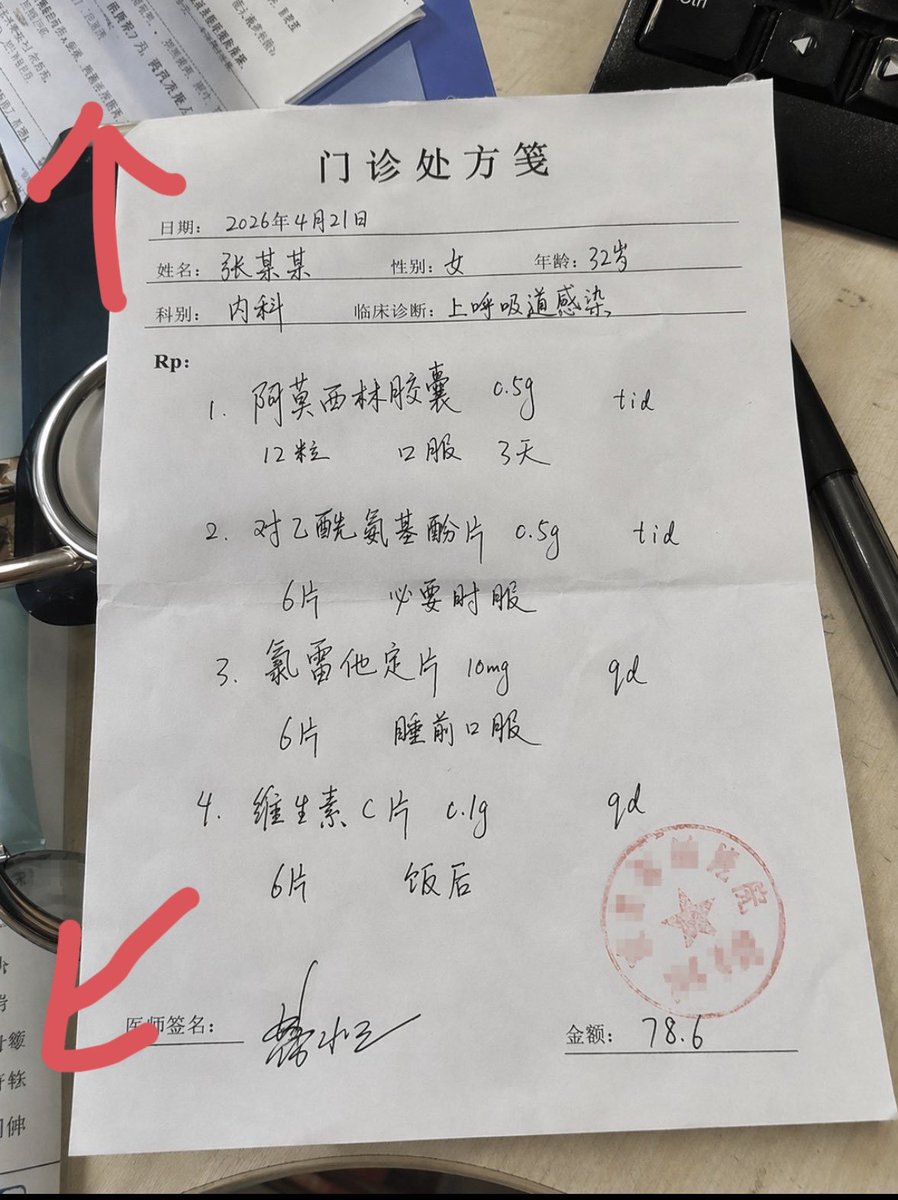 门诊处方笺
日期: 2026年4月21日
姓名: 张某某 性别: 女 年龄: 32岁
科别: 内科 临床诊断: 上呼吸道感染
Rp:
1. 阿莫西林胶囊 0.5g tid
12粒 口服 3天
2. 对乙酰氨基酚片 0.5g tid
6片 必要时服
3. 氯雷他定片 10mg qd
6片 睡前口服
4. 维生素C片 0.1g qd
6片 饭后
医师签名:
金额: 78.6